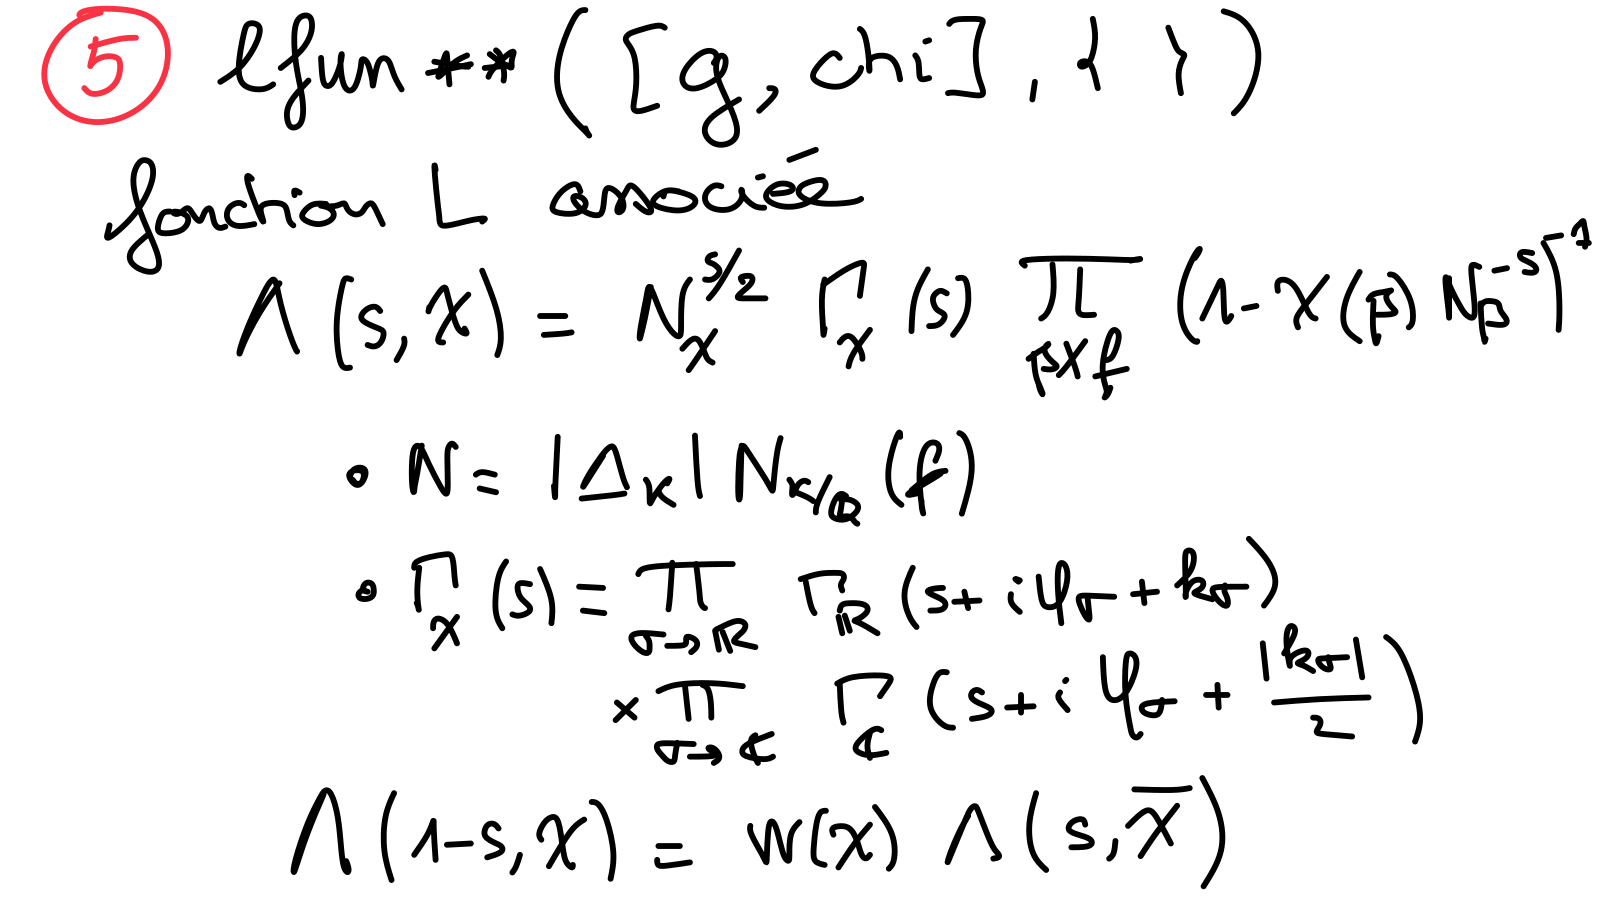 ⑤ lfun**([g, chi], { })
fonction L associée
Λ(s, χ) = N_χ^{s/2} Γ_χ(s) ∏_{𝔭∤f} (1 - χ(𝔭) N𝔭^{-s})^{-1}
• N = |Δ_K| N_{K/ℚ}(f)
• Γ_χ(s) = ∏_{σ→ℝ} Γ_ℝ(s + iφ_σ + k_σ)
× ∏_{σ→ℂ} Γ_ℂ(s + iφ_σ + |k_σ|/2)
Λ(1-s, χ) = W(χ) Λ(s, χ̄)